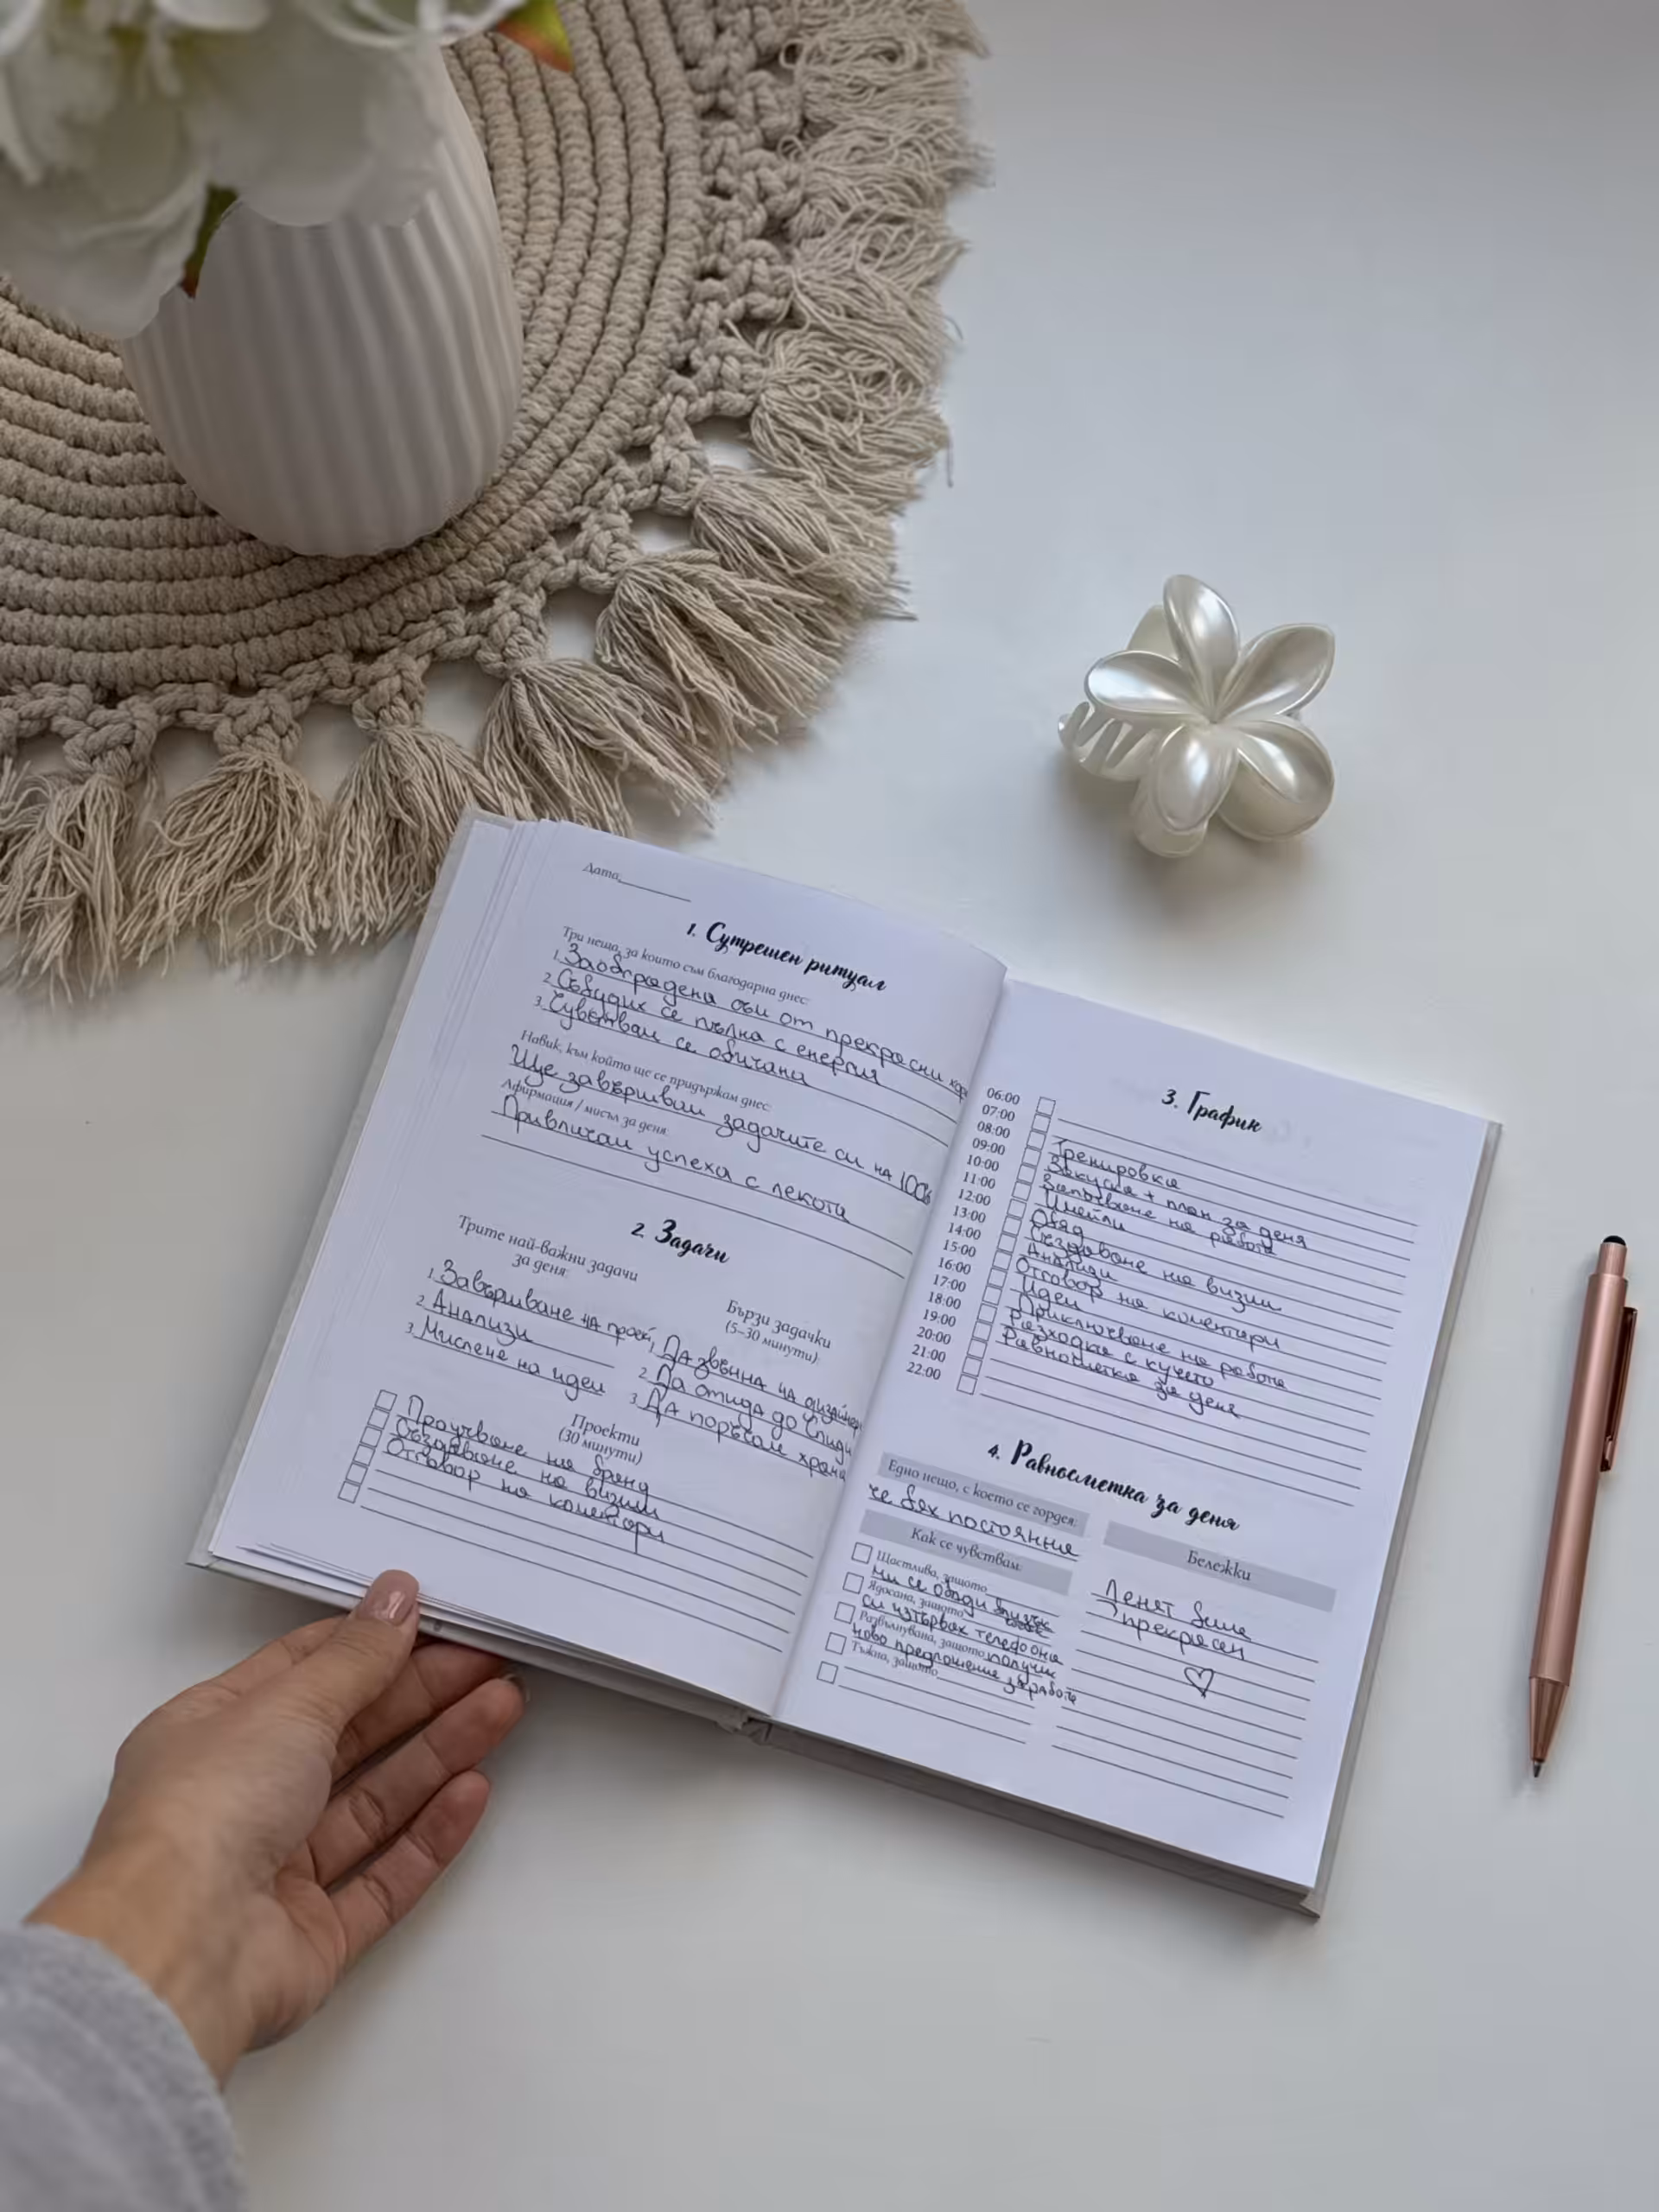 Дата:
1. Сутрешен ритуал
Три неща, за които съм благодарна днес:
1. Заобградена съм от прекрасни хора
2. Събудих се пълна с енергия
3. Чувствам се обичана
Навик, към който ще се придържам днес:
Ще завършвам задачите си на 100%
Афирмация / мисъл за деня:
Привличам успеха с лекота
2. Задачи
Трите най-важни задачи
за деня:
1. Завършване на проект
2. Анализи
3. Мислене на идеи
Бързи задачки
(5–30 минути):
1. Да звънна на дизайнера
2. Да отида до Спиди
3. Да поръчам храна
Проекти
(30 минути)
Проучване на бранд
Създаване на визии
Отговор на коментари
3. График
06:00
07:00
08:00 Тренировка
09:00 Закуска + план за деня
10:00 Започване на работа
11:00 Имейли
12:00 Обяд
13:00 Създаване на визии
14:00 Анализи
15:00 Отговор на коментари
16:00 Идеи
17:00 Приключване на работа
18:00 Разходка с кучето
19:00 Равносметка за деня
20:00
21:00
22:00
4. Равносметка за деня
Едно нещо, с което се гордея:
че бях постоянна
Как се чувствам:
Щастлива, защото
ми се обади близък
Ядосана, защото
си изтървах телефона
Развълнувана, защото получих
ново предложение за работа
Тъжна, защото
Бележки
Денят беше
прекрасен